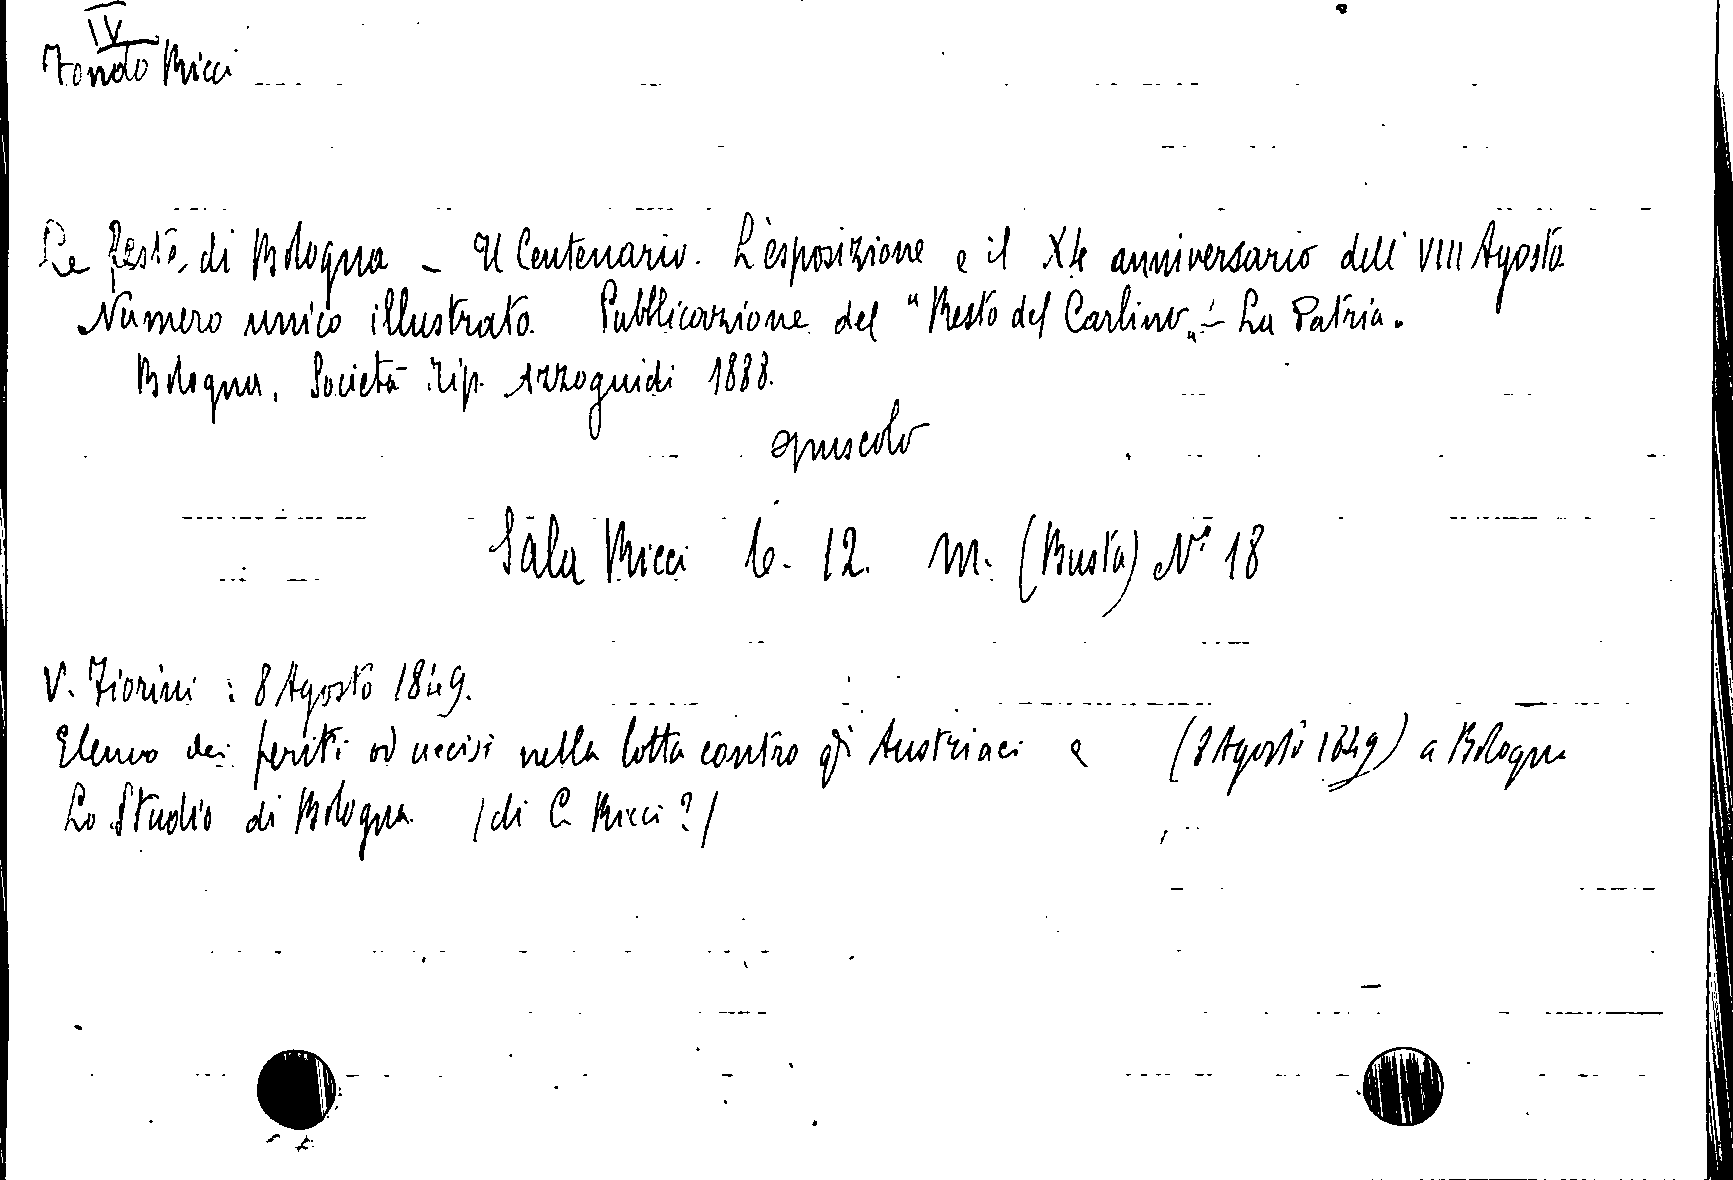 IV
Fondo Ricci
Le feste di Bologna - Il Centenario. L'esposizione e il XL anniversario dell' VIII Agosto
Numero unico illustrato. Pubblicazione del "Resto del Carlino" - La Patria.
Bologna, Società Tip. Azzoguidi 1888.
opuscolo
Sala Ricci C. 12. M. (Busta) N° 18
V. Fiorini : 8 Agosto 1849.
Elenco dei feriti od uccisi nella lotta contro gli Austriaci (8 Agosto 1849) a Bologna
Lo Studio di Bologna /di C. Ricci ?/